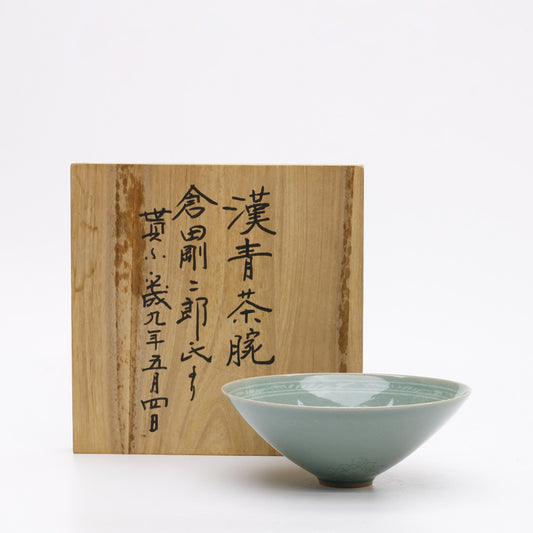 漢青茶腕
倉田剛二郎氏より
貰ふ 平成九年五月四日